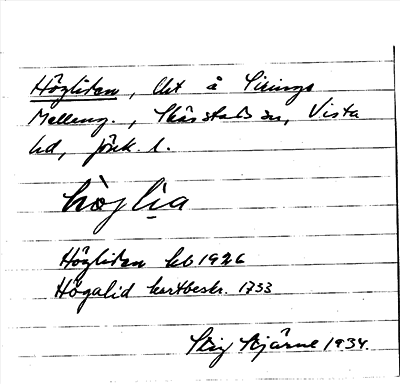 Högliden, lht å Sirings
Melleng., Skärstads sn, Vista
hd, Jönk. l.
hòglịa
Högliden kb 1926
Högalid kartbeskr. 1733
Stig Bjärne 1934.